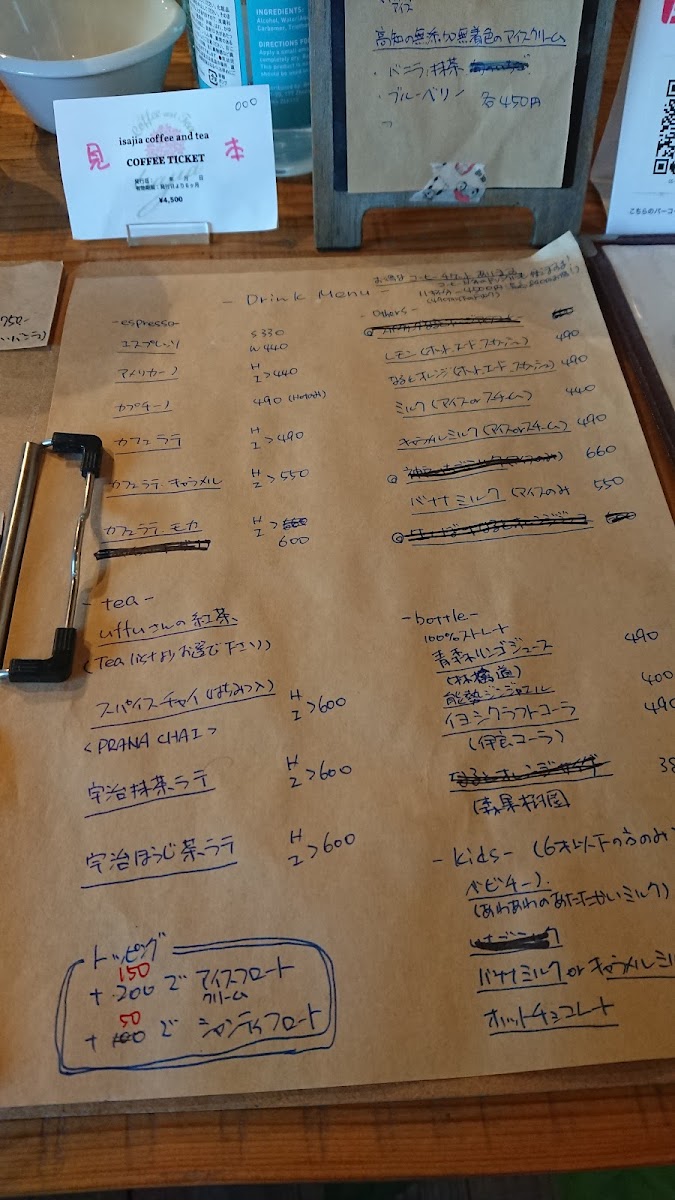 INGREDIENTS:
DIRECTIONS FO
アイス
高知の無添加無着色のアイスクリーム
・バニラ 抹茶
・ブルーベリー 各450円
000
isajia coffee and tea
見 COFFEE TICKET 本
発行日: 年 月 日
有効期限:発行日より6ヶ月
¥4,500
- Drink Menu -
-espresso-
エスプレッソ S 330 W 440
アメリカーノ H I >440
カプチーノ 490 (Hotのみ)
カフェラテ H I >490
カフェラテ・キャラメル H I >550
カフェラテ・モカ H I > 600
- Others -
レモン(ホット、エード、スカッシュ) 490
なるとオレンジ(ホット、エード、スカッシュ) 490
ミルク(アイスorスチーム) 440
キャラメルミルク(アイスorスチーム) 490
660
バナナミルク(アイスのみ 550
- tea -
uffuさんの紅茶、
(Tea listよりお選び下さい)
スパイスチャイ(はちみつ入) H I >600
<PRANA CHAI>
宇治抹茶ラテ H I >600
宇治ほうじ茶ラテ H I >600
-bottle-
100%ストレート
青森りんごジュース 490
(林檎道)
能勢ジンジャエール 400
イヨシクラフトコーラ 490
(伊良コーラ)
- kids- (6才以下の方のみ)
ベビチーノ
(あわあわのあたたかいミルク)
バナナミルク or キャラメルミル
ホットチョコレート
トッピング
150
+ 200 で アイスクリームフロート
50
+ 100 で シャンティフロート